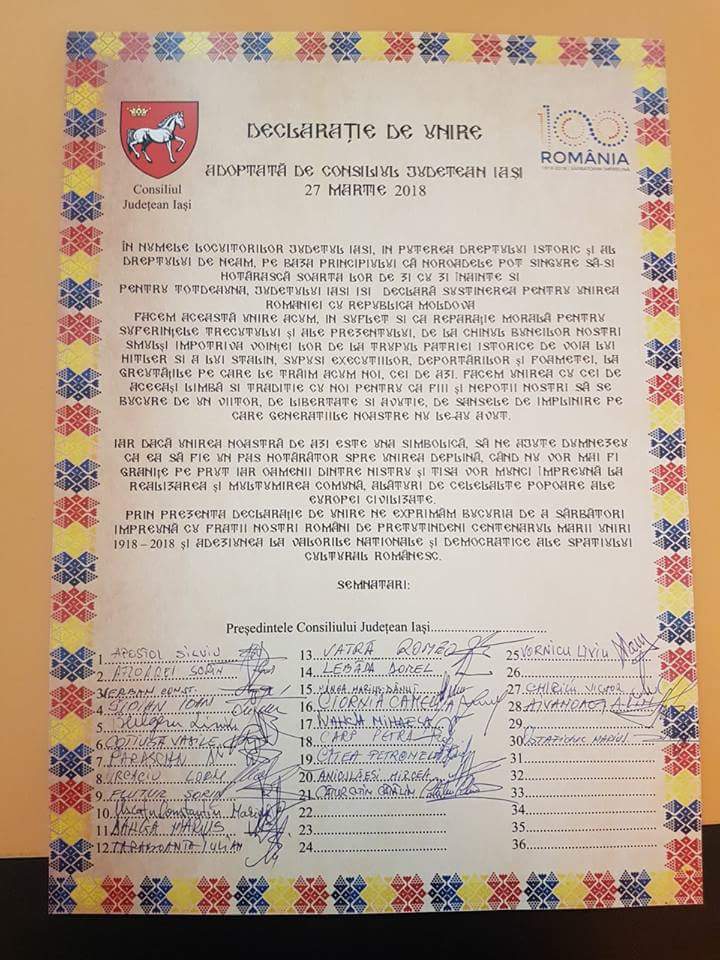 DECLARAȚIE DE UNIRE
ADOPTATĂ DE CONSILIUL JUDETEAN IAȘI
27 MARTIE 2018
Consiliul
Județean Iași
100
ROMÂNIA
1918-2018 | SĂRBĂTORIM ÎMPREUNĂ
ÎN NUMELE LOCUITORILOR JUDETUL IASI, IN PUTEREA DREPTULUI ISTORIC ȘI AL
DREPTULUI DE NEAM, PE BAZA PRINCIPIULUI CĂ NOROADELE POT SINGURE SĂ-SI
HOTĂRASCĂ SOARTA LOR DE ZI CU ZI ÎNAINTE SI
PENTRU TOTDEAUNA, JUDETULUI IASI ISI DECLARĂ SUSTINEREA PENTRU UNIREA
ROMANIEI CU REPUBLICA MOLDOVA
FACEM ACEASTĂ UNIRE ACUM, IN SUFLET SI CA REPARAȚIE MORALĂ PENTRU
SUFERINȚELE TRECUTULUI ȘI ALE PREZENTULUI, DE LA CHINUL BUNEILOR NOSTRI
SMULȘI IMPOTRIVA VOINȚEI LOR DE LA TRUPUL PATRIEI ISTORICE DE VOIA LUI
HITLER SI A LUI STALIN, SUPUSI EXECUTIILOR, DEPORTĂRILOR ȘI FOAMETEI, LA
GREUTĂȚILE PE CARE LE TRĂIM ACUM NOI, CEI DE AZI. FACEM UNIREA CU CEI DE
ACEEAȘI LIMBĂ SI TRADITIE CU NOI PENTRU CA FIII ȘI NEPOTII NOSTRI SĂ SE
BUCURE DE UN VIITOR, DE LIBERTATE SI AVUTIE, DE SANSELE DE IMPLINIRE PE
CARE GENERATIILE NOASTRE NU LE-AU AVUT.
IAR DACĂ UNIREA NOASTRĂ DE AZI ESTE UNA SIMBOLICĂ, SĂ NE AJUTE DUMNEZEU
CA EA SĂ FIE UN PAS HOTĂRÂTOR SPRE UNIREA DEPLINĂ, CÂND NU VOR MAI FI
GRANIȚE PE PRUT IAR OAMENII DINTRE NISTRU ȘI TISA VOR MUNCI ÎMPREUNĂ LA
REALIZAREA ȘI MULTUMIREA COMUNĂ, ALĂTURI DE CELELALTE POPOARE ALE
EUROPEI CIVILIZATE.
PRIN PREZENTA DECLARAȚIE DE UNIRE NE EXPRIMĂM BUCURIA DE A SĂRBĂTORI
IMPREUNĂ CU FRATII NOSTRI ROMÂNI DE PRETUTINDENI CENTENARUL MARII UNIRI
1918 – 2018 ȘI ADEZIUNEA LA VALORILE NATIONALE ȘI DEMOCRATICE ALE SPATIULUI
CULTURAL ROMÂNESC.
SEMNATARI:
Președintele Consiliului Județean Iași
1. APOSTOL SILVIU
2. SORIN
3. ȘERBAN CONST.
4. IOAN
5.
6. VASILE
7.
8.
9. FLUTUR SORIN
10. Constantin
11. MARIUS
12. IULIAN
13. VATRĂ ROMEO
14. LEBĂDA DOREL
15. MANEA MARIUS DĂNUȚ
16. CIORNIA CAMELIA
17. MIHAELA
18. CARP PETRU
19. PETRONELA
20. MIRCEA
21. CĂTĂLIN
22.
23.
24.
25. VORNICU LIVIU
26.
27. CHIRILĂ VICTOR
28.
29.
30. MARIUS
31.
32.
33.
34.
35.
36.